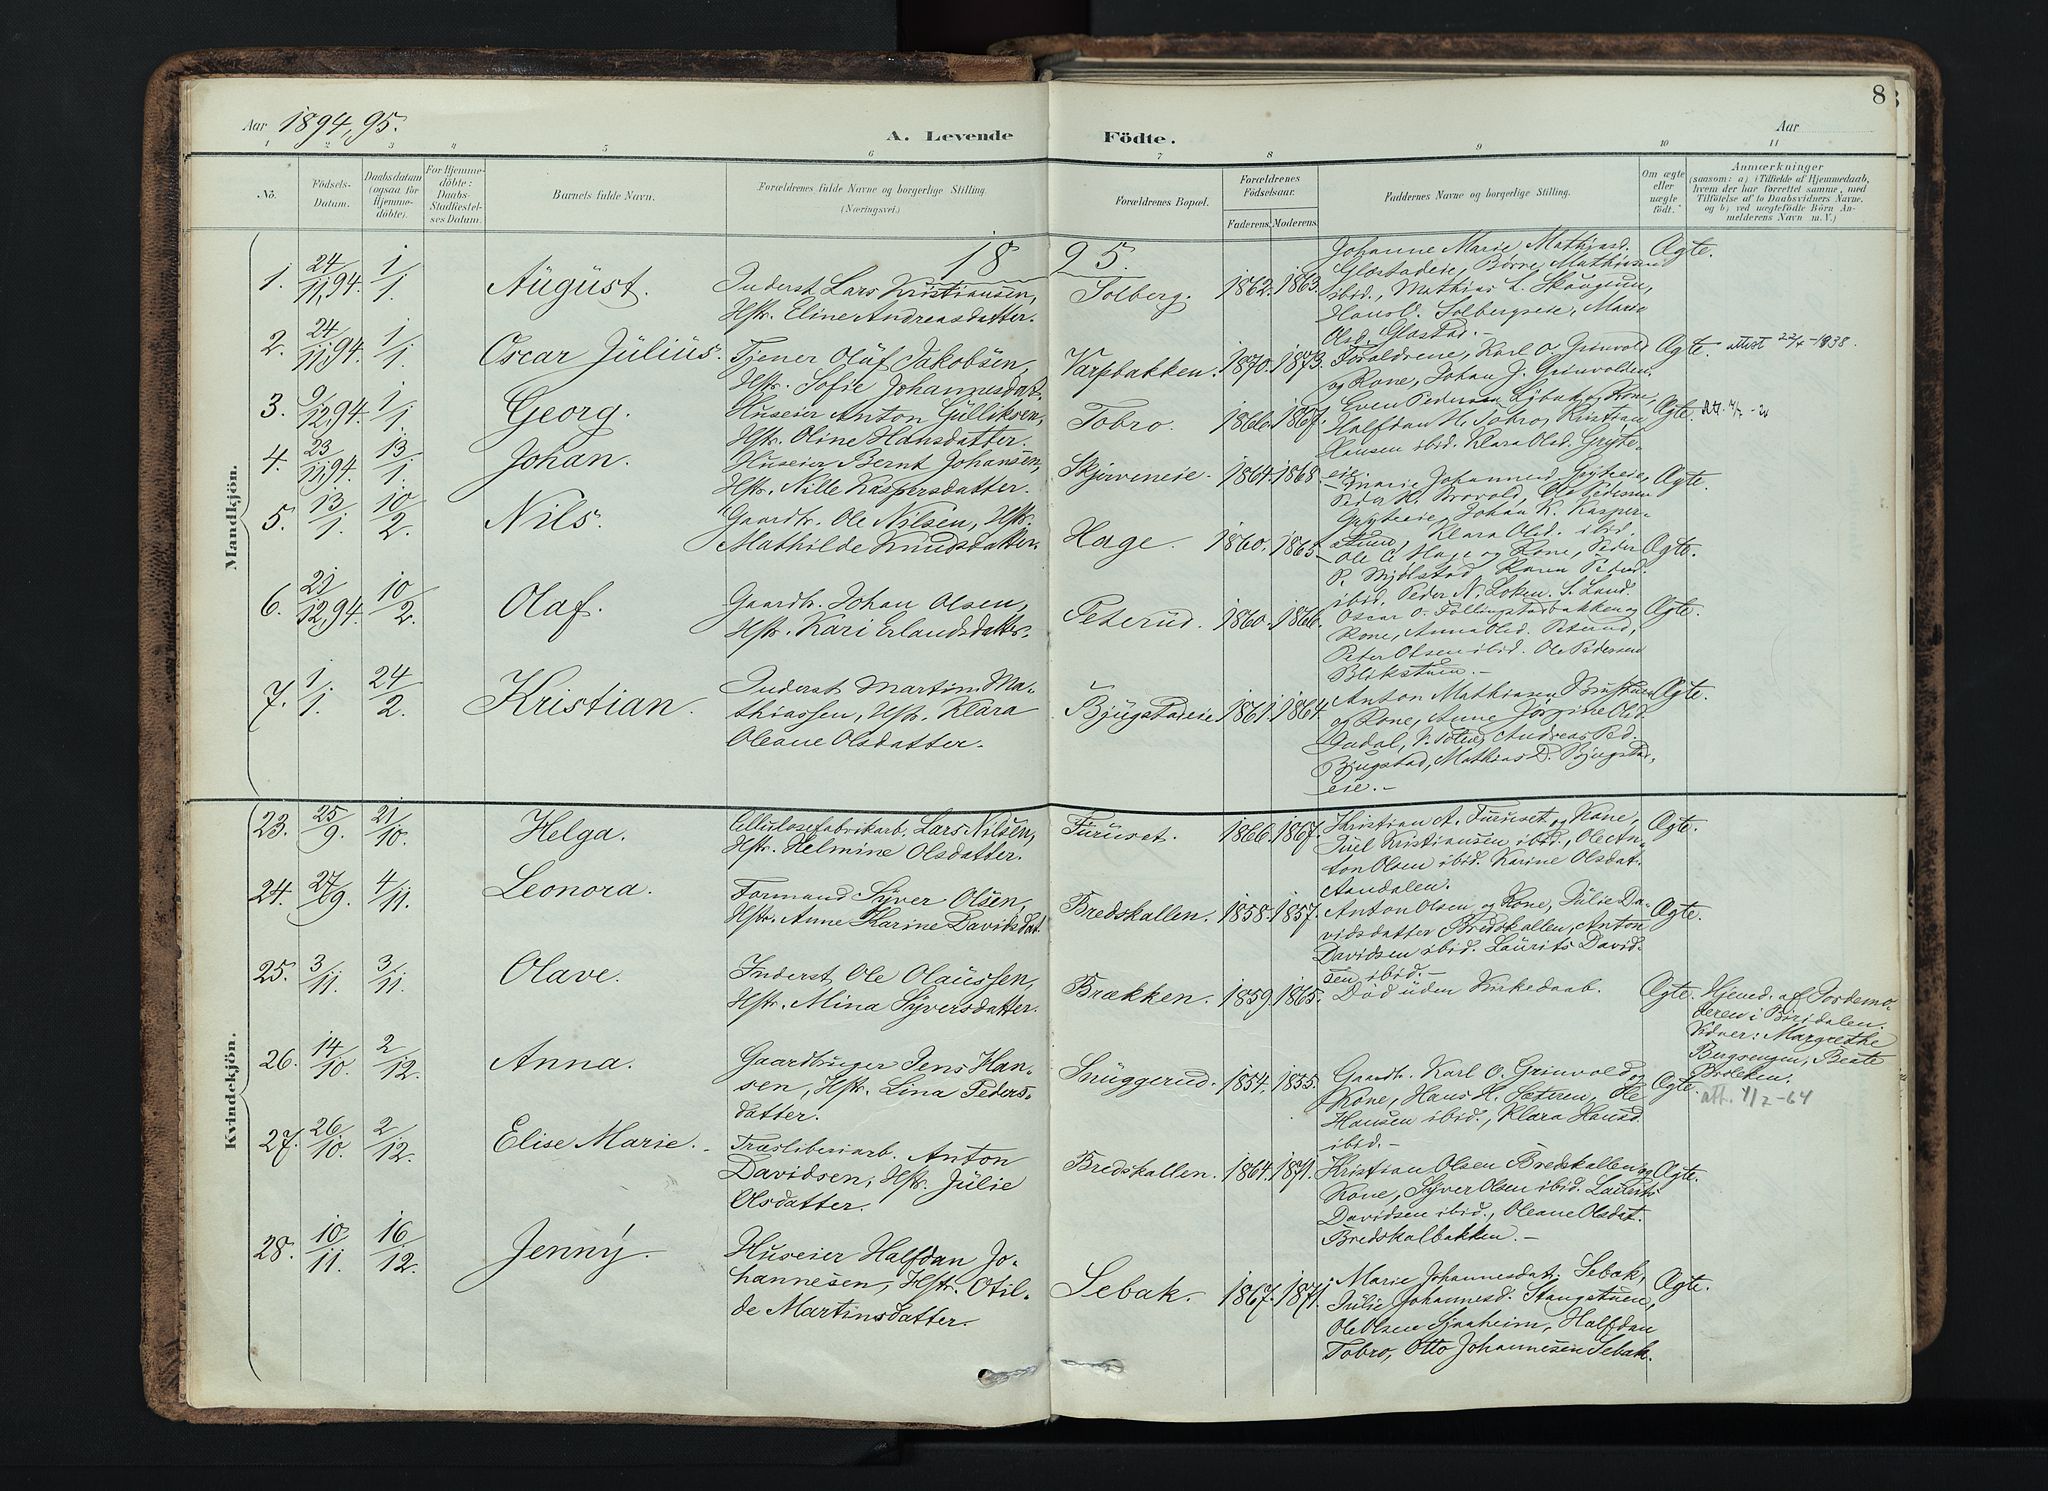 Aar 1894, 95.
A. Levende Födte.
Aar
8
1 2 3 4 5 6 7 8 9 10 11
No.
Födsels-Datum.
Daabsdatum (ogsaa for Hjemmedöbte).
For Hjemmedöbte: Daabs-Stadfæstelses Datum.
Barnets fulde Navn.
Forældrenes fulde Navne og borgerlige Stilling. (Næringsvei.)
Forældrenes Bopæl.
Forældrenes Födselsaar.
Faderens Moderens
Faddernes Navne og borgerlige Stilling.
Om ægte eller uægte födt.
Anmærkninger
(saasom: a) (Tilfælde af Hjemmedaab,
hvem der har forrettet samme, med
Tilföielse af to Daabsvidners Navne.
og b) ved uegtefödte Börn An-
melderens Navn m. V.)
Mandkjön.
1895.
1. 24/11,94. 1/1. August. Inderst Lars Kristiansen,
Hstr. Eline Andreasdatter.
Solberg. 1862. 1863.
Johanne Marie Mathiasd.
Glæstadeie, Børre Mathiesen
ibid., Mathias L. Skaugrun,
Hans O. Solbergseie, Marie
Olsd. Glæstad.-
Ægte.
2. 24/11,94. 1/1. Oscar Julius. Tjener Oluf Jakobsen,
Hstr. Sofie Johannesdat.
Varpbakken. 1870. 1873.
Forældrene, Karl O. Grønvold
og Kone, Johan J. Grønvolden,
Even Pedersen Kone,
Ægte. attest 22/4-1938.
3. 9/12,94. 1/1. Georg. Huseier Anton Gulliksen,
Hstr. Oline Hansdatter.
Tobro. 1866. 1867.
Halfdan H. Tobro, Kristian
Hansen ibid. Klara Olsd. Grytte-
eie.-
Ægte.
4. 23/11,94. 13/1. Johan. Huseier Bernt Johansen,
Hstr. Nille Kaspersdatter.
Skjerveneie. 1864. 1868.
Marie Johannesd. Grytteeie,
Peder H. Brovold, Ole Pedersen
Grytteeie, Johan K. Kasper-
Klara Olsd. ibid.
Ægte.
5. 13/1. 10/2. Nils. Gaardbr. Ole Nilsen, Hstr.
Mathilde Knudsdatter.
Hage. 1860. 1865.
Ole C. Hage og Kone, Peder
P. Mjølstad Karen Pedersd.
ibid. Peder N. Løken. S. Land.
Ægte.
6. 21/12,94. 10/2. Olaf. Gaardbr. Johan Olsen,
Hstr. Kari Erlandsdatter.
Peterud. 1860. 1866.
Oscar O. Follingstadbakken og
Kone, Anna Olsd. Peterud,
Peter Olsen ibid. Ole Pedersen
Blikstuen.-
Ægte.
7. 1/1. 24/2. Kristian. Inderst Martin Ma-
thiassen, Hstr. Klara
Oleane Olsdatter.
Bjugstadeie 1861. 1864.
Anton Mathiasen
og Kone, Anne Jørgine Olsd.
Andreas Ped.
Bjugstad, Mathias D. Bjugstad-
eie.-
Ægte.
Kvindekjön.
23. 25/9. 21/10. Helga. Cellulosefabrikarb. Lars Nilsen,
Hstr. Helmine Olsdatter.
Furuset. 1866. 1867.
Kristian A. Furuset, og Kone,
Juel Kristiansen ibid., Ole An-
ton Olsen ibid. Karine Olsdat.
Aandalen.
Ægte.
24. 27/9. 4/11. Leonora. Formand Syver Olsen,
Hstr. Anne Karine Davidsdat.
Bredskallen. 1858. 1857.
Anton Olsen og Kone, Julie Da-
vidsdatter Bredskallen, Anton
Davidsen ibid. Laurits David-
sen ibid.-
Ægte.
25. 3/11. 3/11. Olave. Inderst Ole Olaussen,
Hstr. Mina Syversdatter.
Brækken. 1859. 1865.
Död uden Kirkedaab.
Ægte.
Hjemd. af Jordemo-
deren i Biridalen.
Vidner: Margrethe
Bergsengen, Beate
26. 14/10. 2/12. Anna. Gaardbruger Jens Han-
sen, Hstr. Lina Peders-
datter.
Snuggerud. 1854. 1855.
Gaardb. Karl O. Grinvold og
Kone, Hans H. Sæteren, Ole
Hansen ibid., Klara Hansd.
ibid.-
Ægte. att. 1/7-64
27. 26/10. 2/12. Elise Marie. Træsliberiarb. Anton
Davidsen, Hstr. Julie
Olsdatter.
Bredskallen. 1864. 1871.
Kristian Olsen Bredskallen og
Kone, Syver Olsen ibid. Laurits
Davidsen ibid., Oleane Olsdat.
Bredskalbakken.-
Ægte.
28. 10/11. 16/12. Jenny. Huseier Halfdan Jo-
hannesen, Hstr. Otil-
de Martinsdatter.
Sebak. 1867. 1871.
Marie Johannesdat. Sebak,
Julie Johannesd. Stangstuen,
Ole Olsen Sjaaheim, Halfdan
Tobro, Otto Johannesen Sebak.
Ægte.